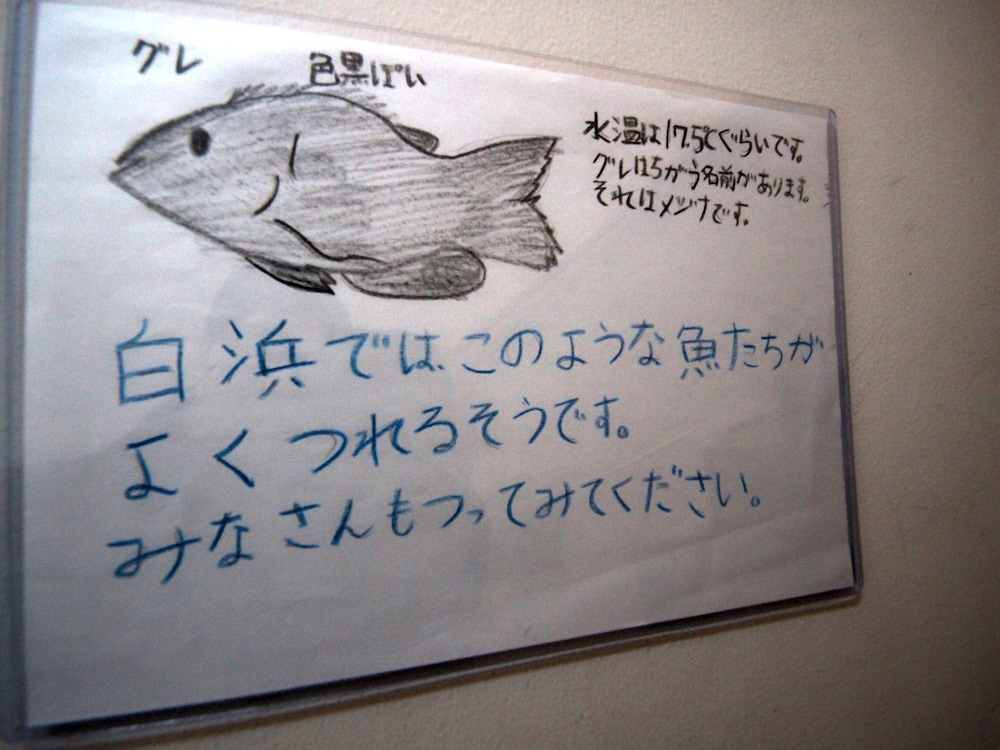 グレ
色黒ぽい
水温は17.5℃ぐらいです。
グレはちがう名前があります。
それはメジナです。
白浜ではこのような魚たちが
よくつれるそうです。
みなさんもつってみてください。